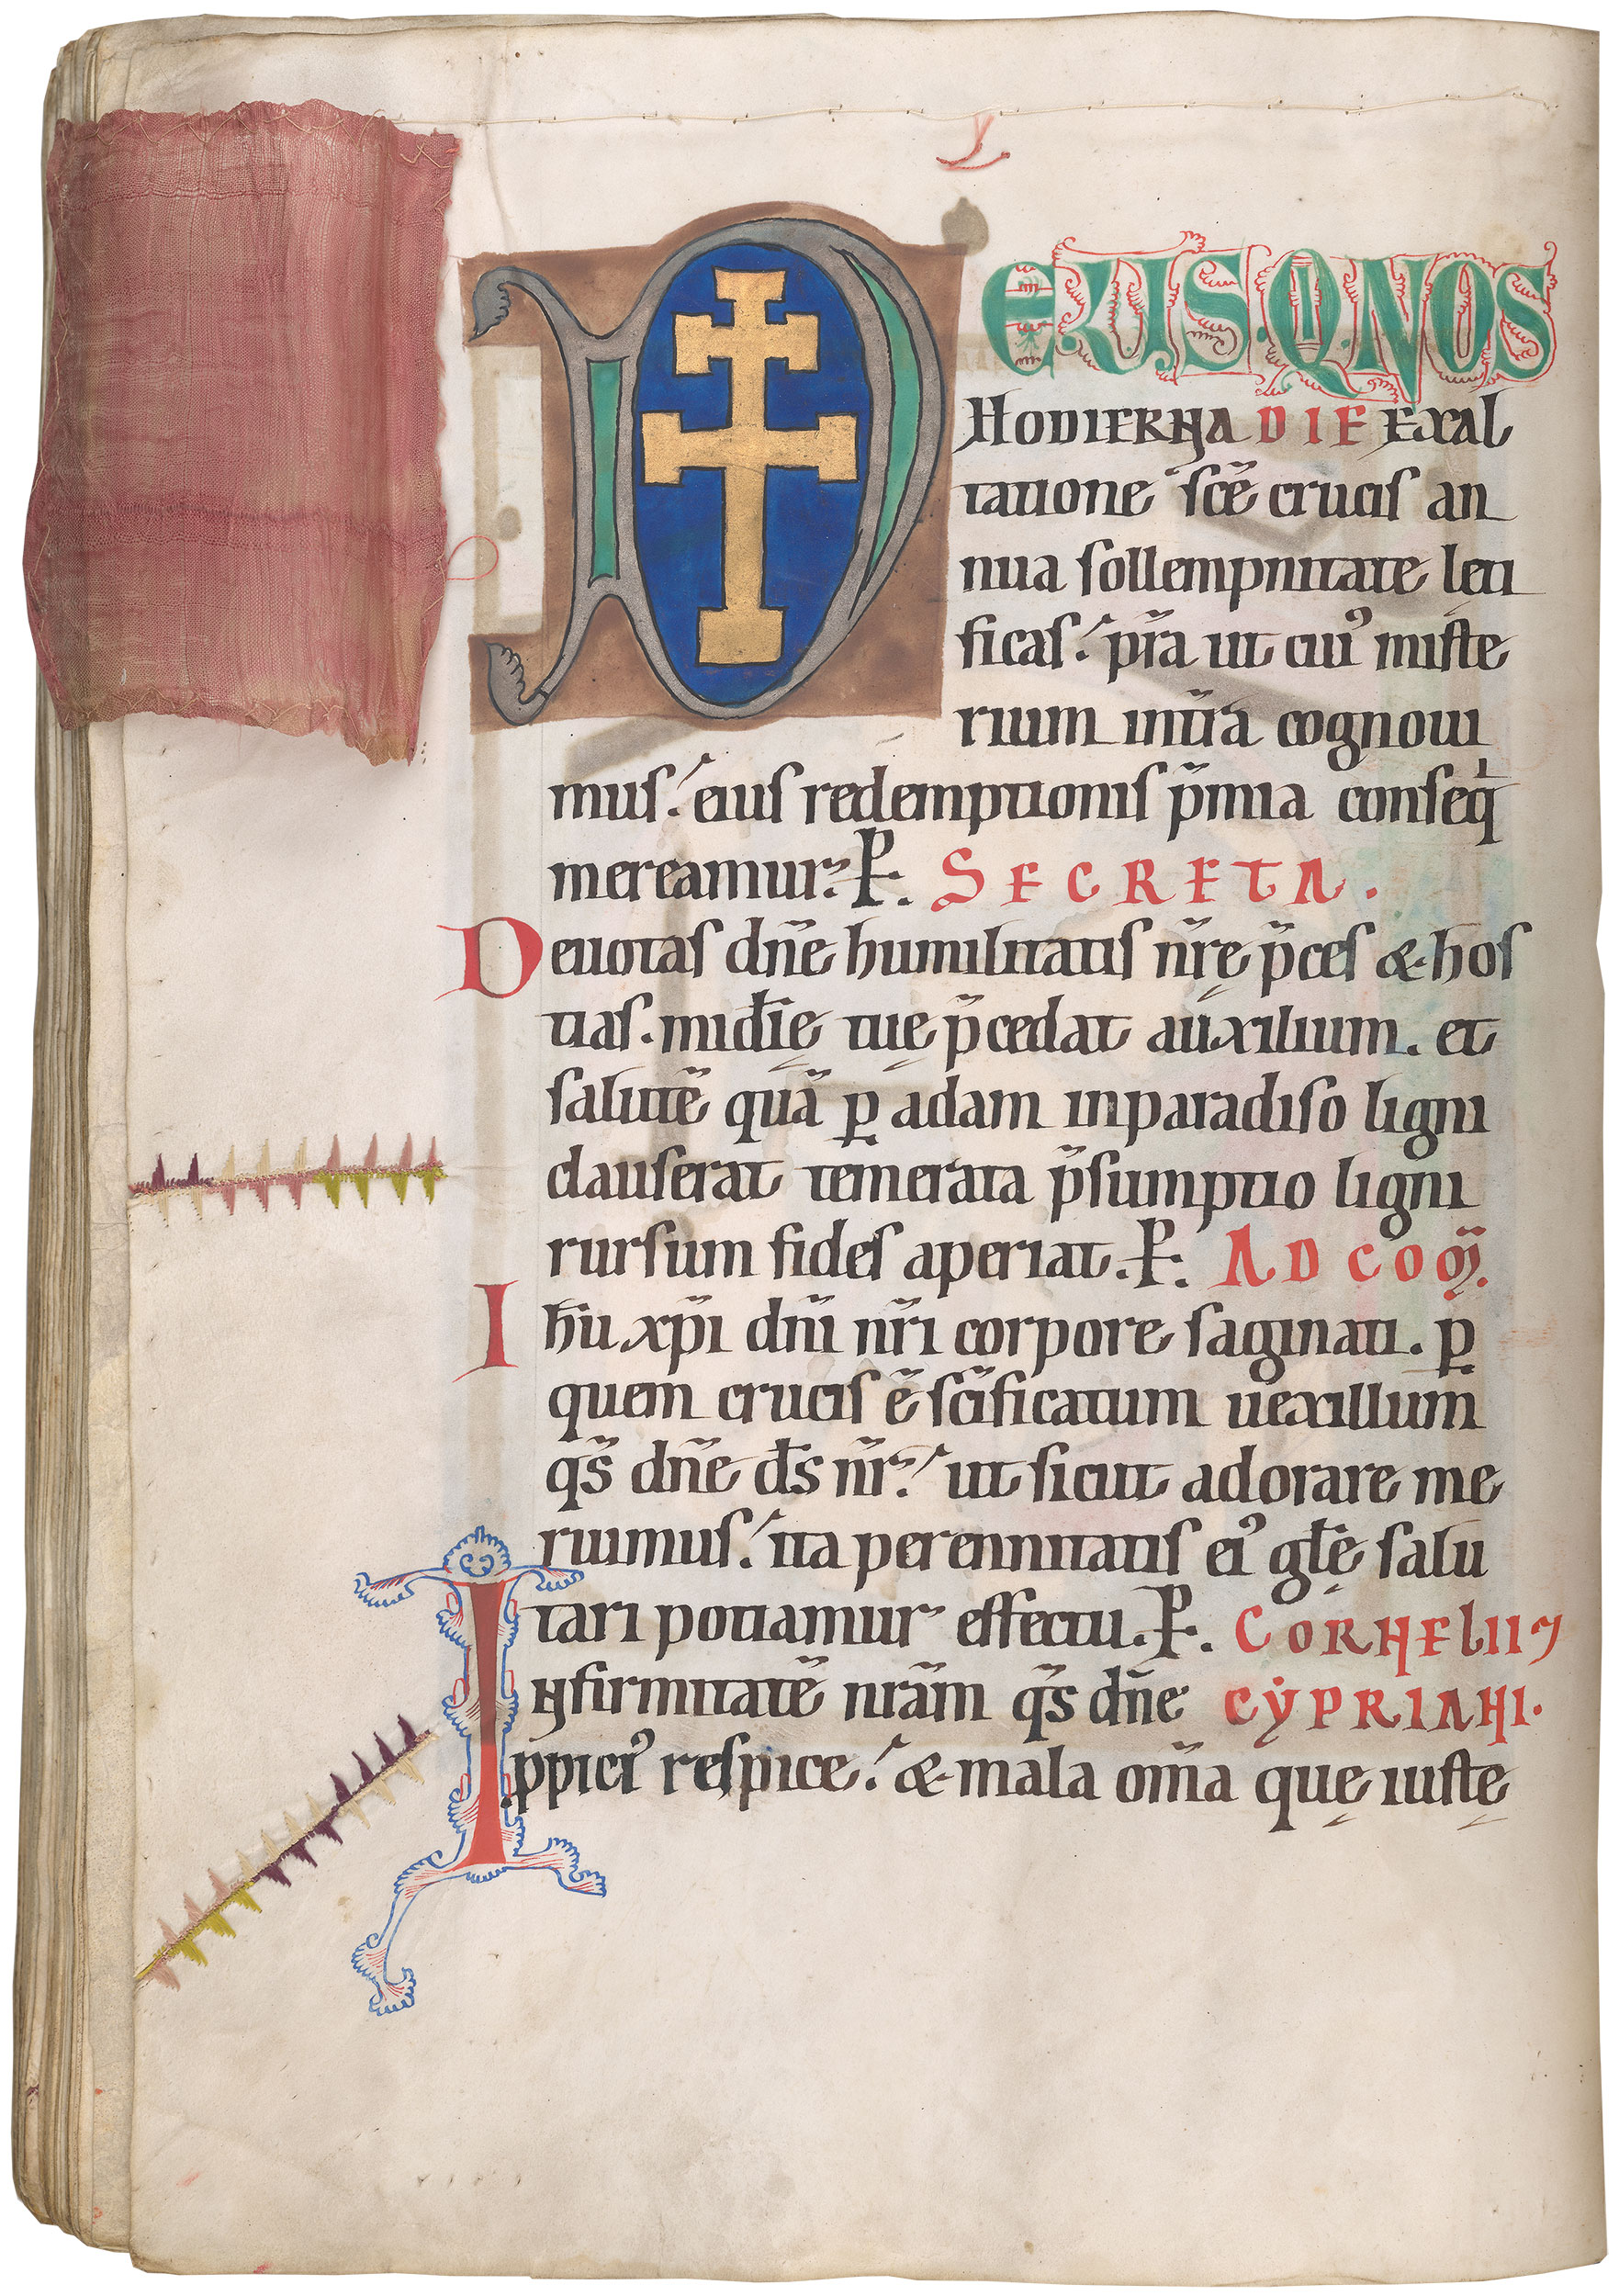 D EUS. Q NOS
HODIERNA DIE EXAL
tatione sc̄e crucis an
nua sollempnitate lęti
ficas. p̄ra ut cui᾽ miste
rium int̄ra cognoui
mus. eius redemptionis p̄mia conseqͥ
mereamur. P. SECRETA.
Deuotas dn̄e humilitatis nr̄ę p̄ces & hos
tias. mīdię tuę p̄cedat auxilium. et
salutē quā ꝑ adam inparadiso ligni
clauserat temerata p̄sumptio ligni
rursum fides aperiat. P. AD COM̄.
Ihu xp̄i dn̄i nr̄i corpore saginati. ꝑ
quem crucis ē sc̄ificatum uexillum
qs̄ dn̄e ds̄ nr̄. ut sicut adorare me
ruimus. ita perennitatis ei᾽ gl̄ę salu
tari potiamur effectu. P. CORNELII ⁊
Infirmitatē nrām qs̄ dn̄e CYPRIANI.
ppici᾽ respice. & mala om̄a quę iustę